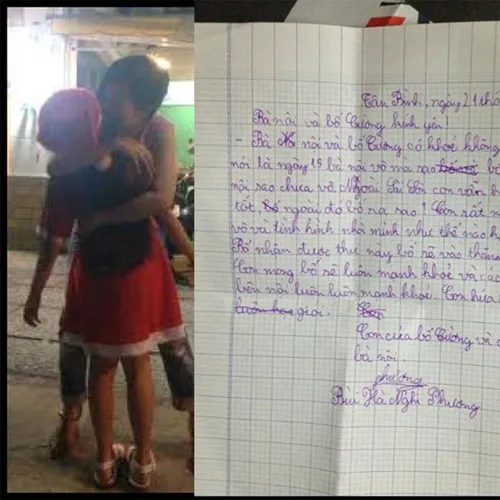 Tân Bình, ngày 21 thá
Bà nội và bố Cường kính yêu!
- Bà nội và bố Cường có khoẻ không
nói là ngày 15 bà nội vô mà sao
nội sao chưa vô Ngoài Sài Gòn con vẫn k
tốt, ngoài đó bố ra sao? Con rất
vô và tình hình nhà mình như thế nào
Bố nhận được thư này bố sẽ vào thăm
Con mong bố sẽ luôn mạnh khoẻ và cá
bên nội luôn luôn mạnh khoẻ. Con hứa
luôn học giỏi.
Con của bố Cường và c
bà nội.
phương
Bùi Hà Nghi Phương